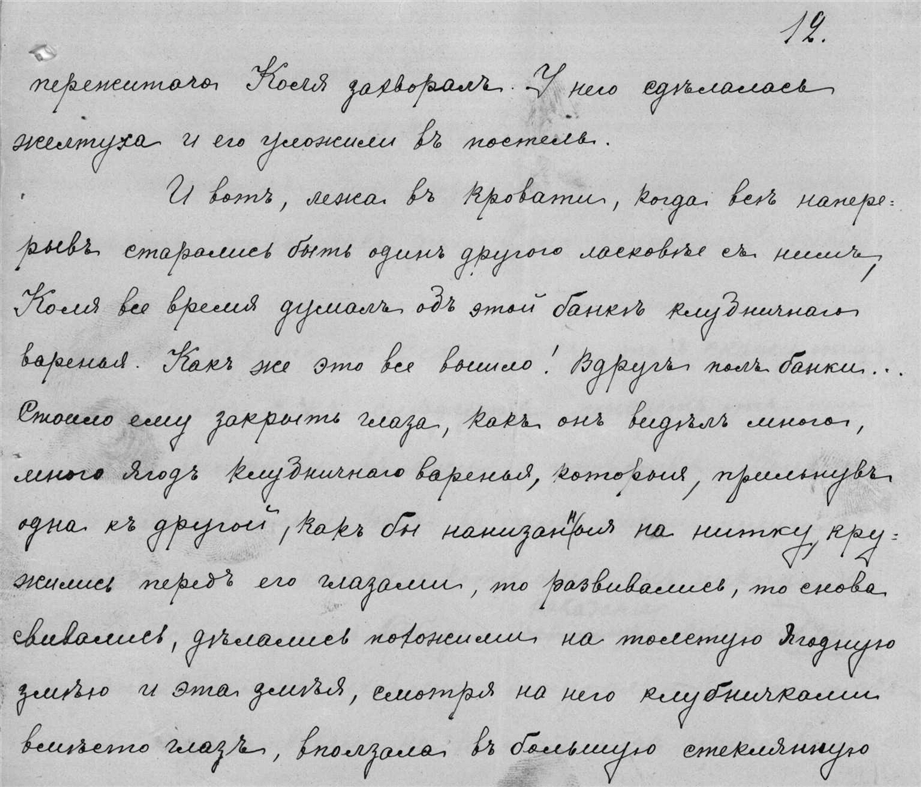 12.
пережитаго Коля захворалъ. У него сдѣлалась
желтуха и его уложили въ постель.
И вотъ, лежа въ кровати, когда всѣ напере=
рывъ старались быть одинъ другого ласковѣе съ нимъ,
Коля все время думалъ объ этой банкѣ клубничнаго
варенья. Какъ же это все вышло! Вдругъ полъ банки...
Стоило ему закрыть глаза, какъ онъ видѣлъ много,
много ягодъ клубничнаго варенья, которыя, прильнувъ
одна къ другой, какъ бы нанизанныя на нитку, кру=
жились передъ его глазами, то развивались, то снова
свивались, дѣлались похожими на толстую ягодную
змѣю и эта змѣя, смотря на него клубничками
вмѣсто глазъ, вползала въ большую стеклянную